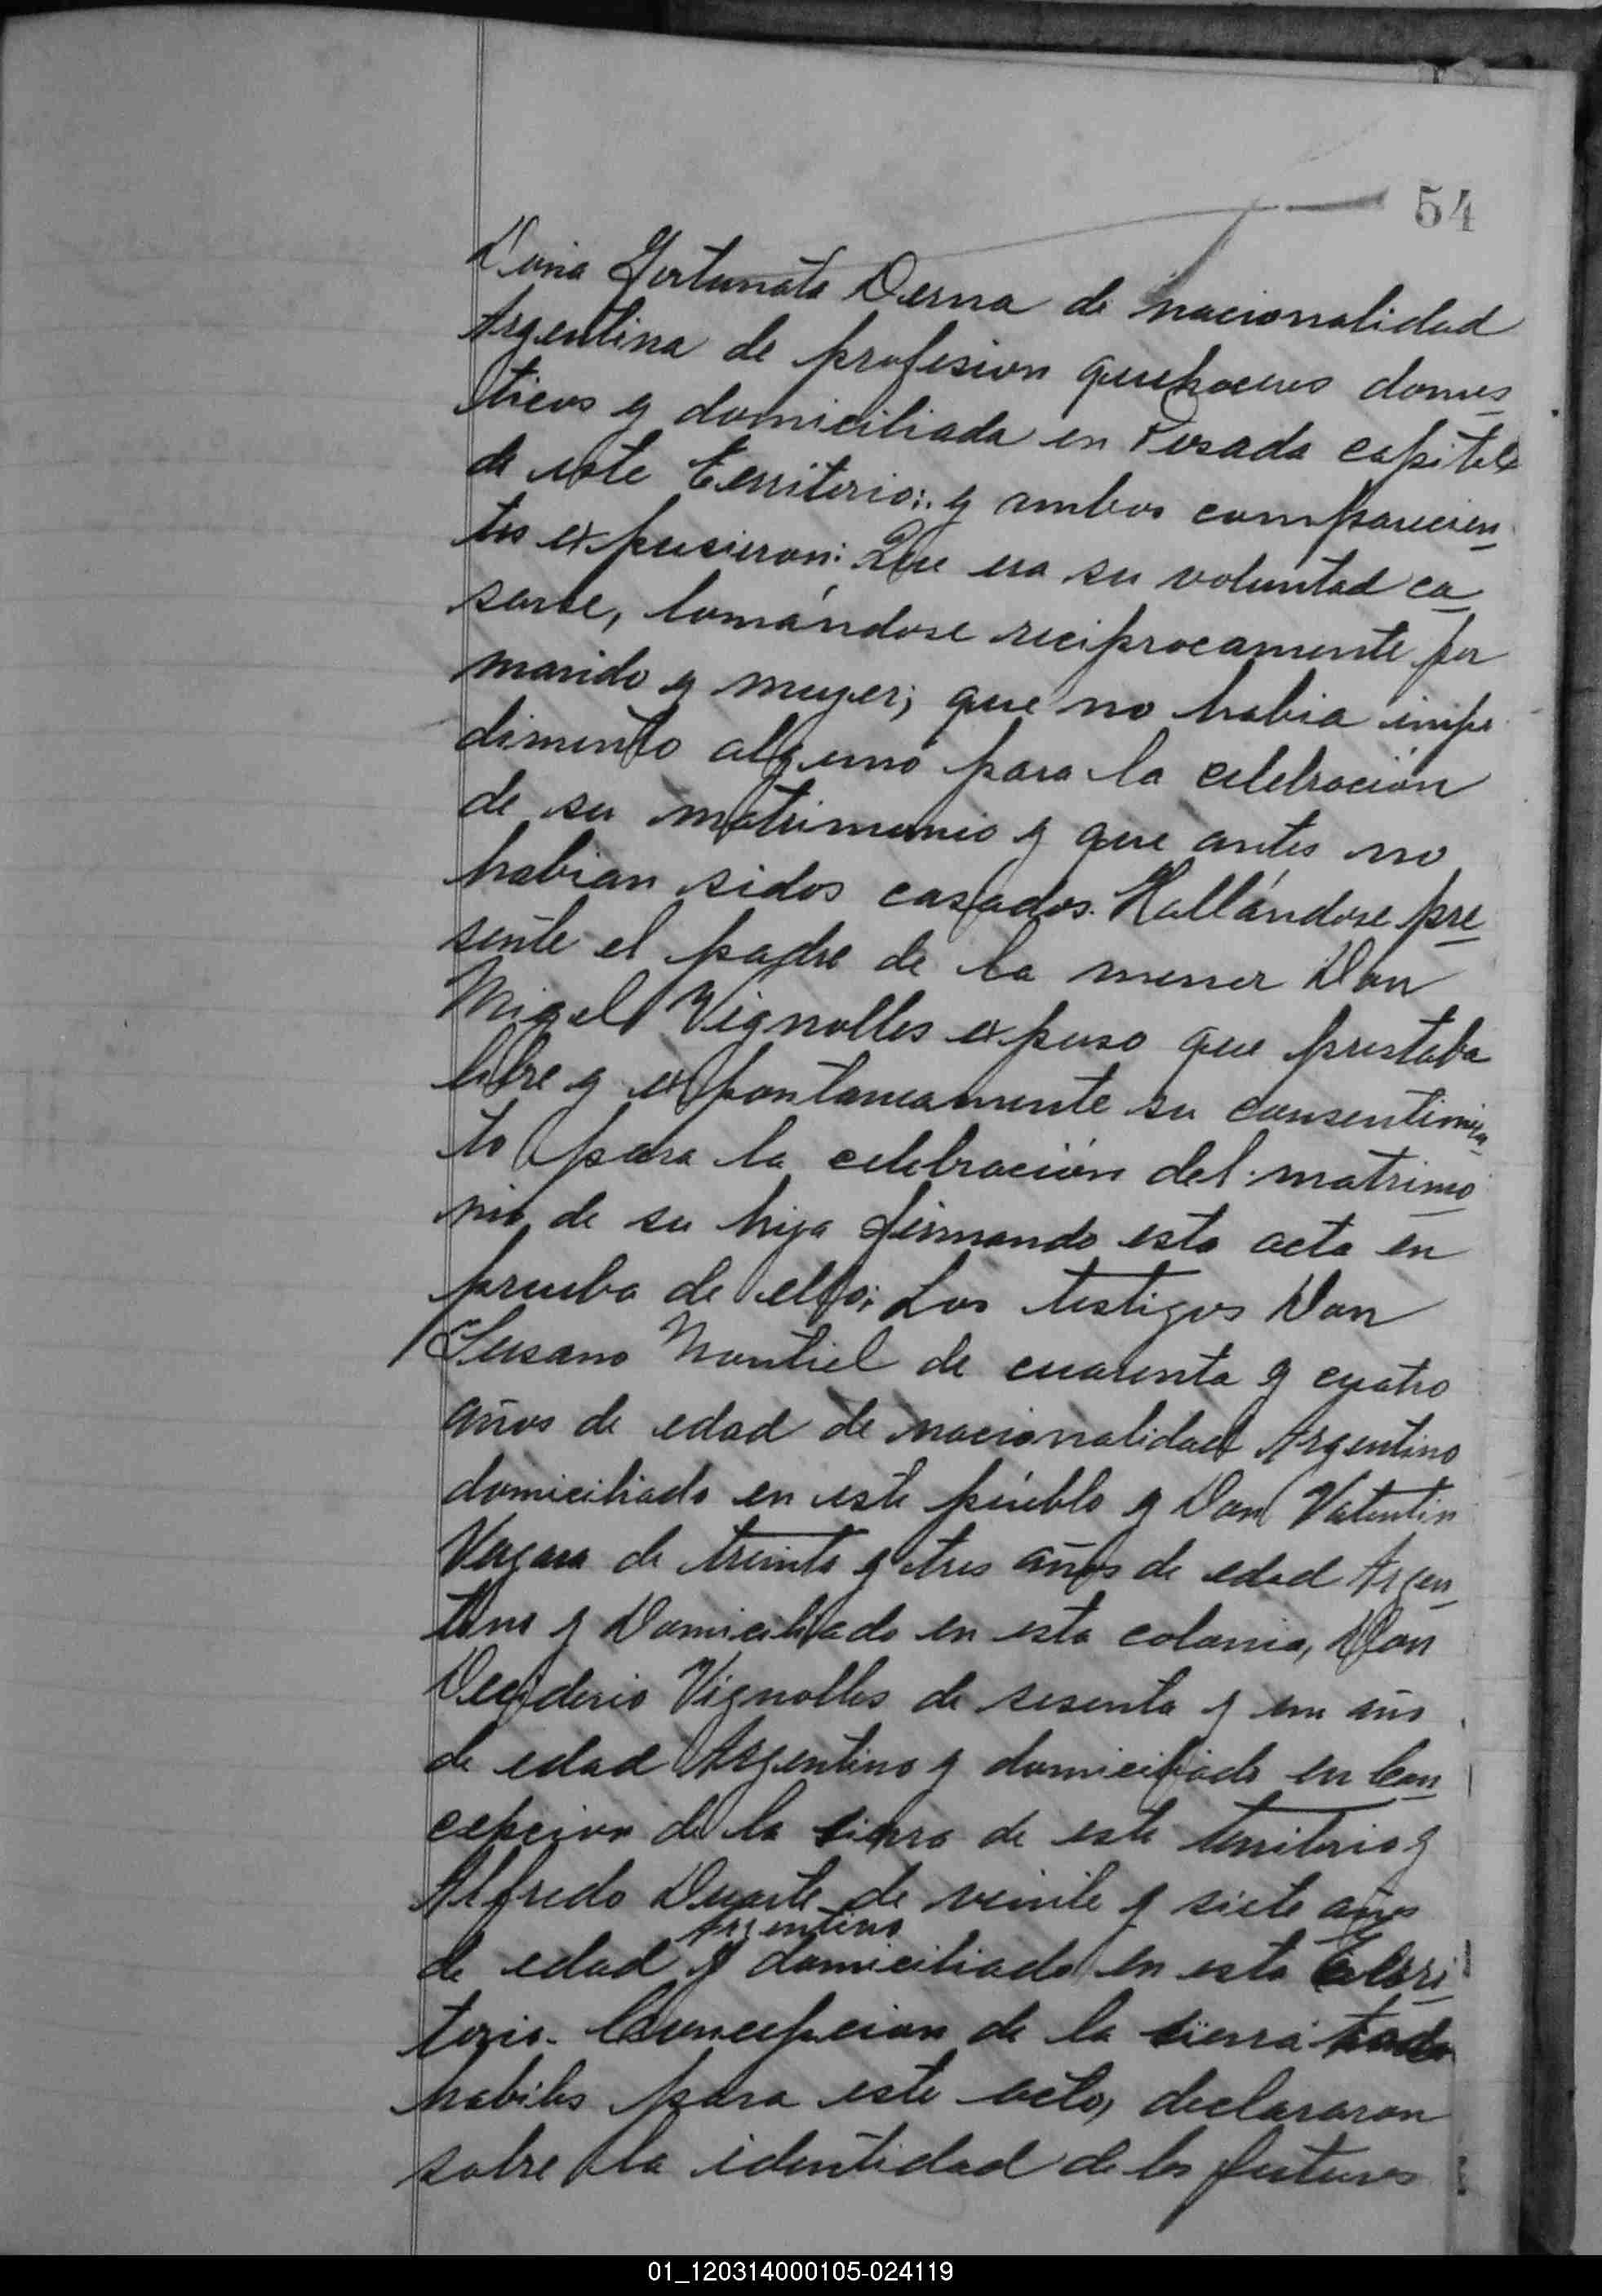 54
Doña Fortunata Serna de nacionalidad
Argentina de profesion quehaceres domes
ticos y domiciliada en Posada capital
de este Territorio:. y ambos comparecien
tes expusieron: Que era su voluntad ca
sarse, tomándose reciprocamente por
marido y muger; que no habia impe
dimento alguno para la celebración
de su matrimonio y que antes no
habian sidos casados. Hallándose pre
sente el padre de la menor Don
Migel Vignolles expuso que prestaba
libre y expontaneamente su consentimien
to para la celebración del matrimo
nio de su hija firmando esta acta en
prueba de ello; Los testigos Don
Susano Montiel de cuarenta y cuatro
años de edad de nacionalidad Argentino
domiciliado en este pueblo y Don Valentin
Vergara de treinta y tres años de edad Argen
tino y Domiciliado en esta colonia, Don
Deciderio Vignolles de sesenta y un año
de edad Argentino y domiciliado en Con
cepcion de la sierra de este territorio y
Alfredo Duarte de veinte y siete años
Argentino
de edad y domiciliado en esta Terri
torio. Concepcion de la sierra
habiles para este acto, declararon
sobre la identidad de los futuros
01_120314000105-024119